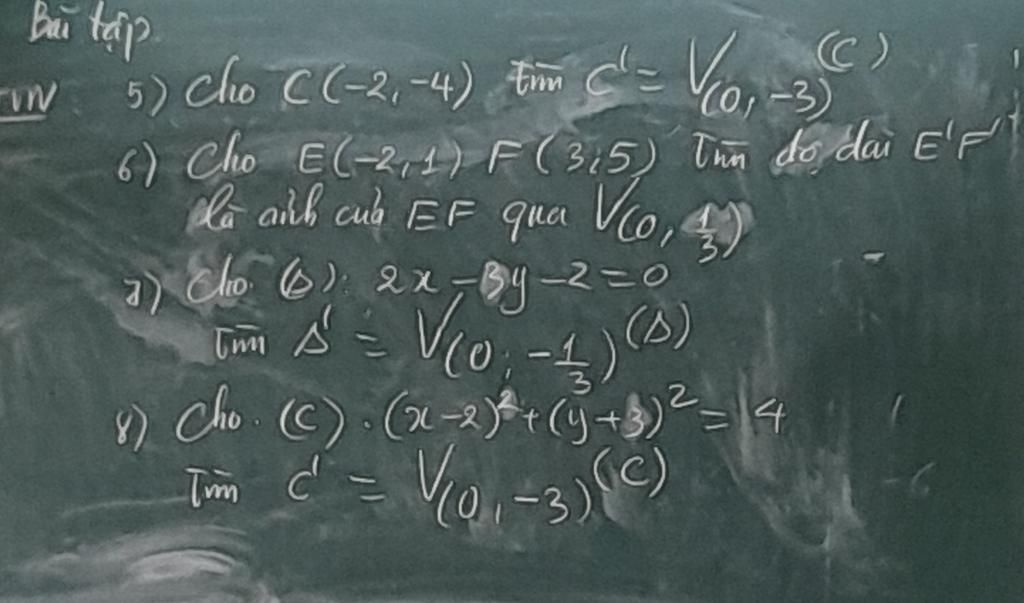 Bài tập
TVN 5) Cho C(-2,-4) tìm C' = V(O,-3)(C)
6) Cho E(-2,1) F(3;5) Tìm độ dài E'F'
là ảnh của EF qua V(O, 1/3)
7) Cho (Δ): 2x - 3y - 2 = 0
Tìm Δ' = V(O; -1/3)(Δ)
8) Cho (C): (x-2)² + (y+3)² = 4
Tìm C' = V(O,-3)(C)